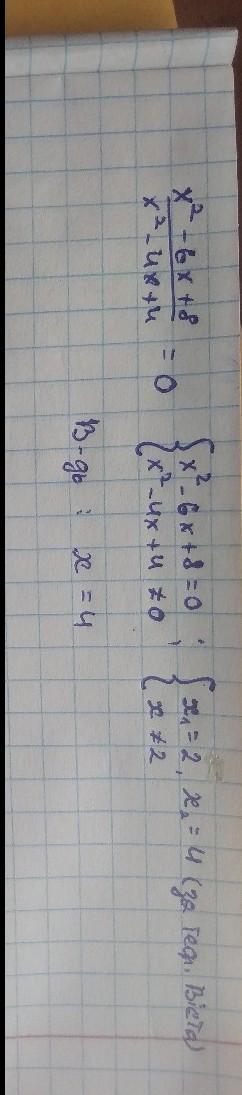 x² - 6x + 8 / x² - 4x + 4 = 0 { x² - 6x + 8 = 0 ; x² - 4x + 4 ≠ 0 , { x₁ = 2, x₂ = 4 (за теор. Вієта) x ≠ 2
В-дь : x = 4